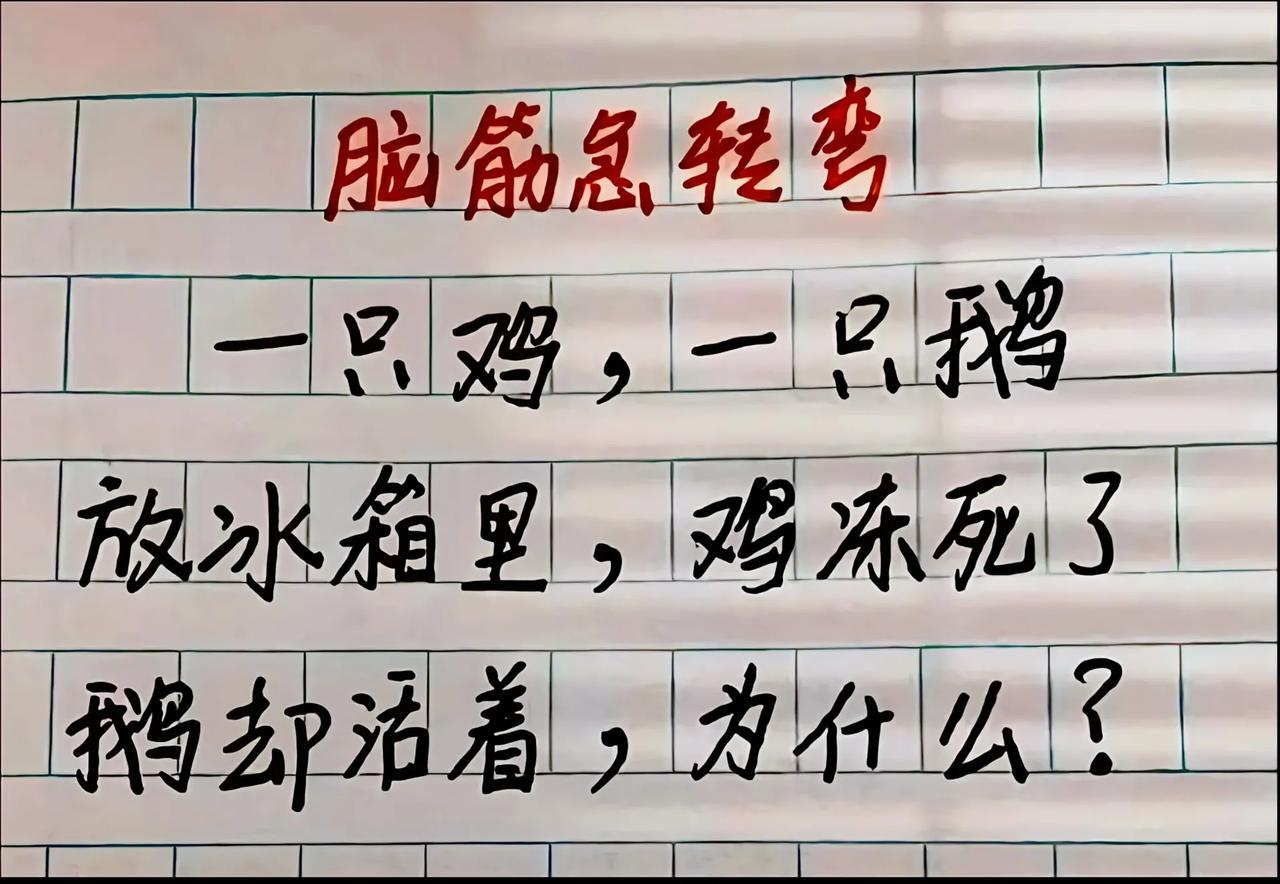 脑筋急转弯
一只鸡,一只鹅
放冰箱里,鸡冻死了
鹅却活着,为什么?